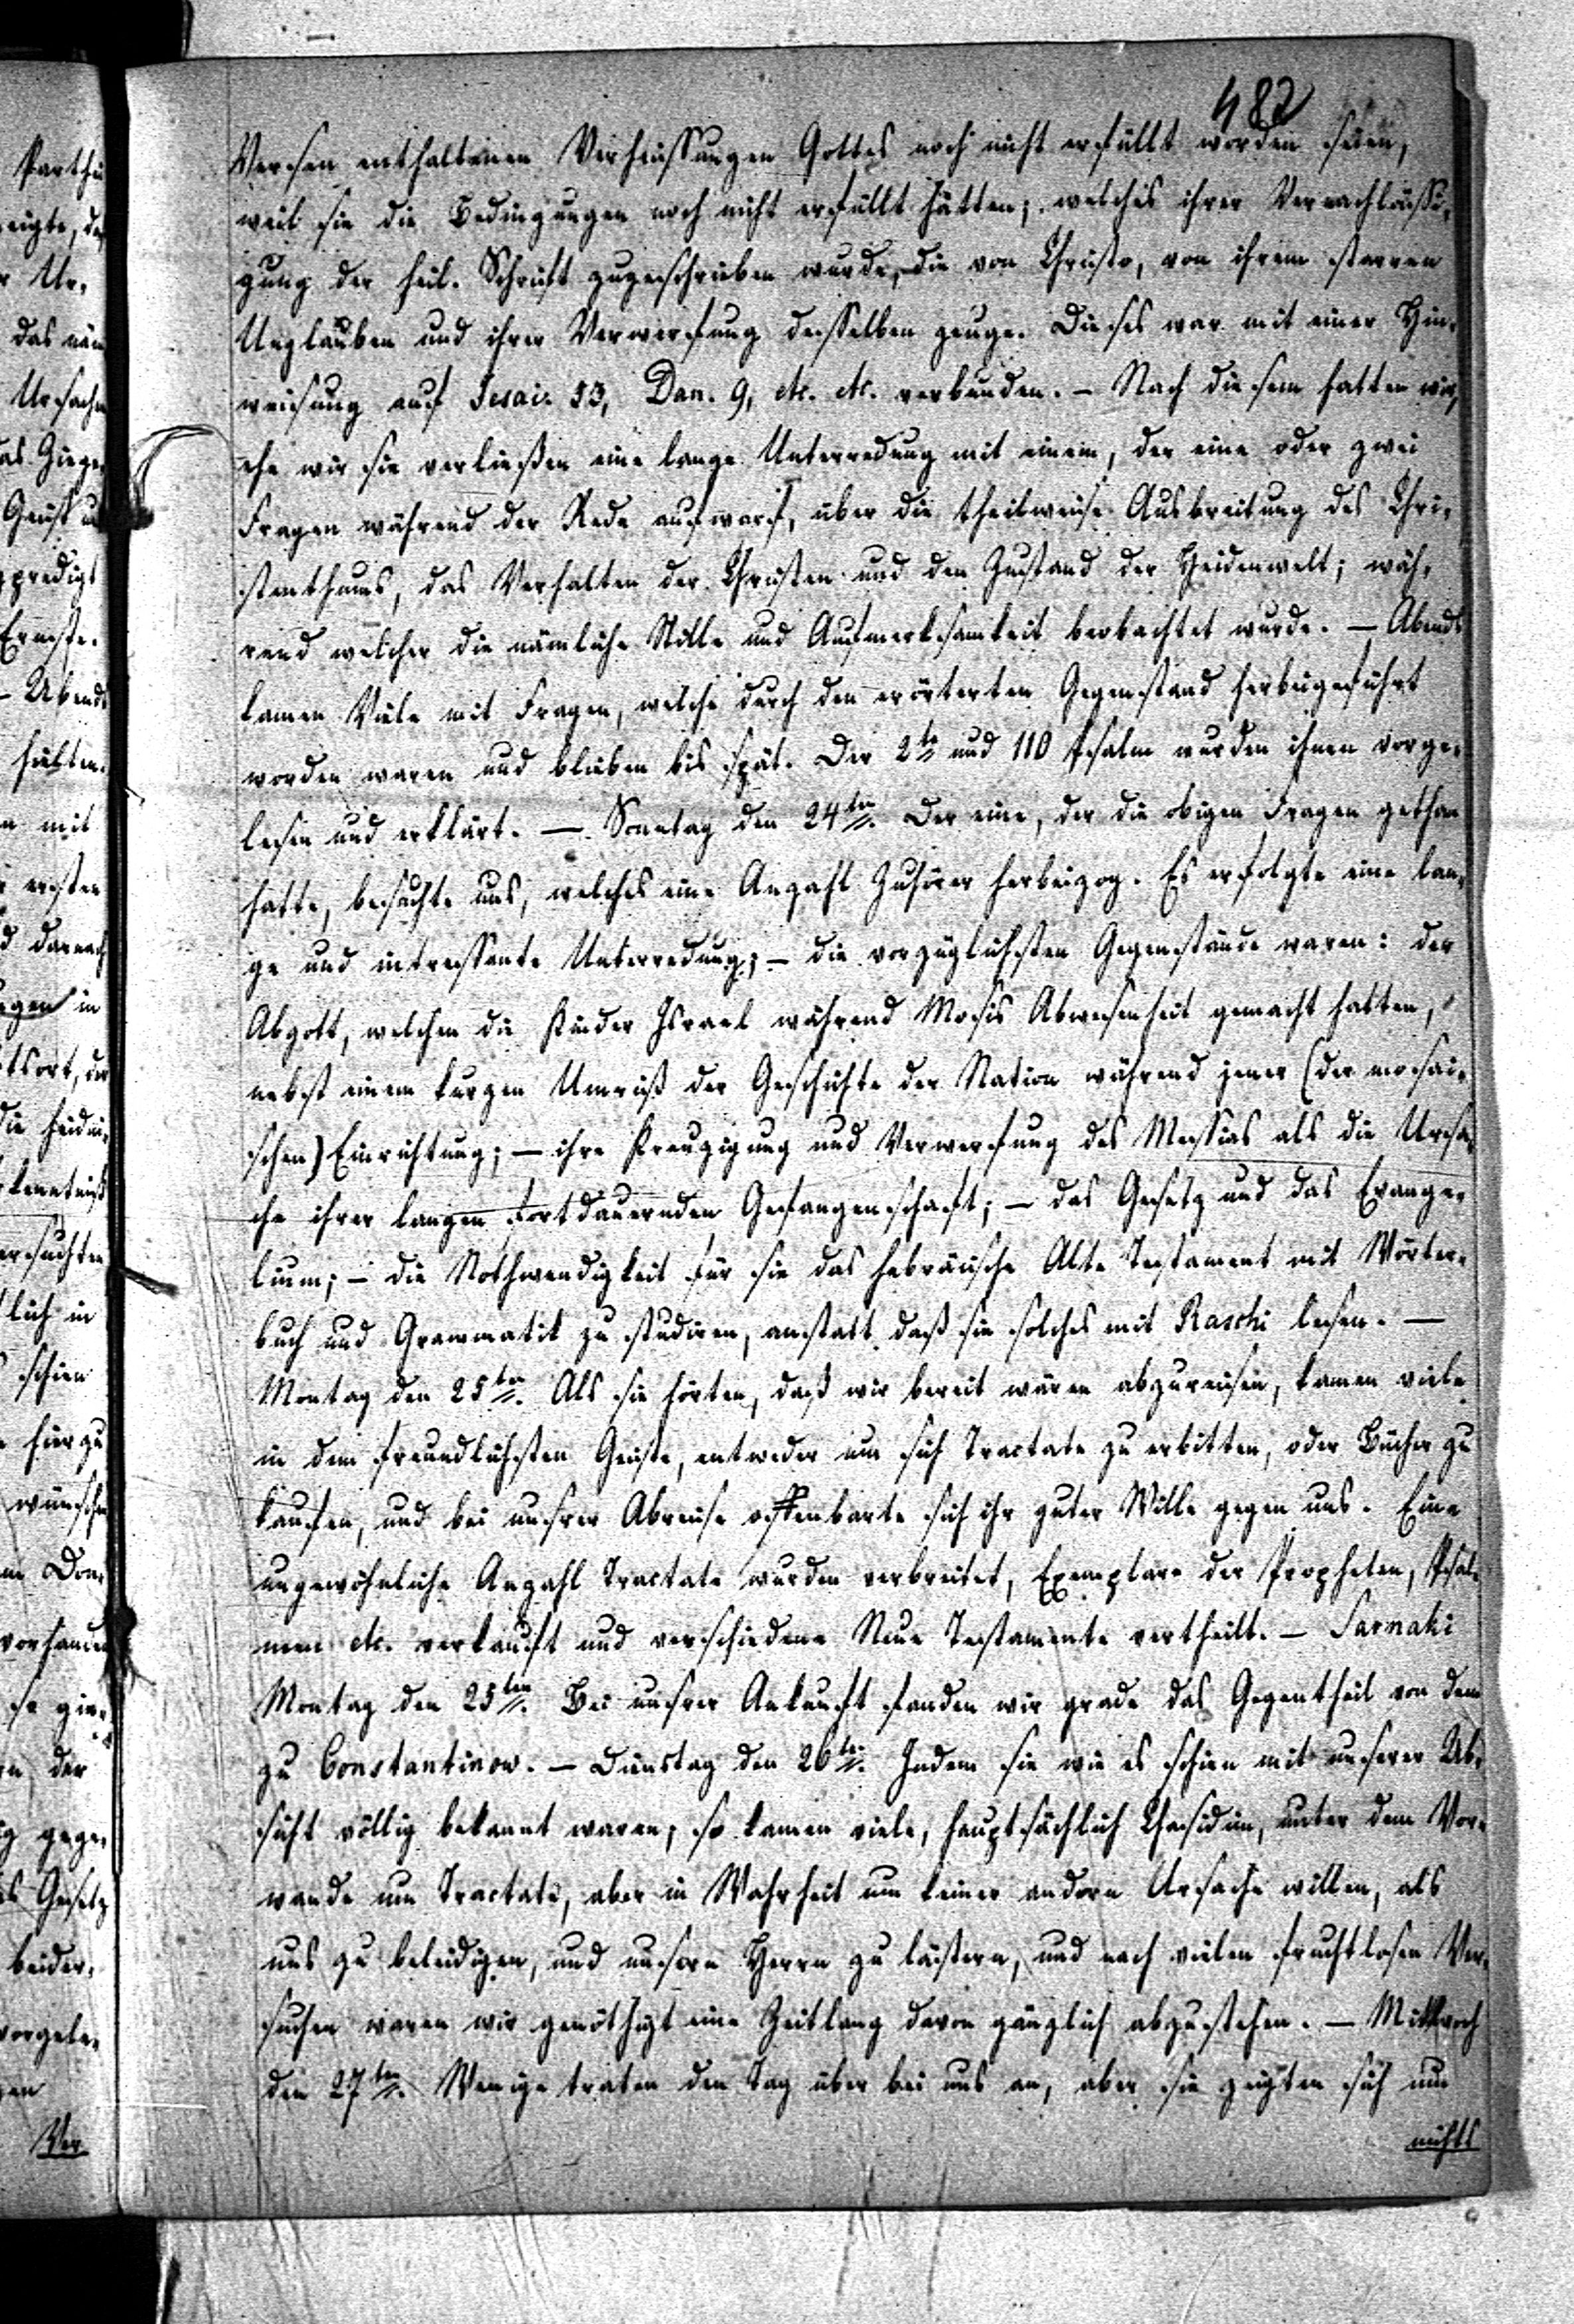 482
Versen enthaltenen Verheissungen Gottes noch nicht erfüllt worden seien,
weil sie die Bedingungen noch nicht erfüllt hätten; welches ihrer Vernachlässi-
gung der heil. Schrift zugeschrieben wurde, die von Christo, von ihrem starren
Unglauben und ihrer Verwerfung desselben zeuge. Dieses war mit einer Hin-
weisung auf Jesai. 53, Dan. 9, etc. etc. verbunden. – Nach diesem hatten wir,
ehe wir sie verließen eine lange Unterredung mit einem, der eine oder zwei
Fragen während der Rede aufwarf, über die theilweise Ausbreitung des Chri-
stenthums, das Verhalten der Christen und den Zustand der Heidenwelt; wäh-
rend welcher die nämliche Stille und Aufmerksamkeit beobachtet wurde. – Abends
kamen Viele mit Fragen, welche durch den erörterten Gegenstand herbeigeführt
worden waren und blieben bis spät. Der 2te und 110 Psalm wurden ihnen vorge-
lesen und erklärt. – Sonntag den 24ten. Der eine, der die obigen Fragen gethan
hatte, besuchte uns, welches eine Anzahl Zuhörer herbeizog. Es erfolgte eine lan-
ge und intressante Unterredung; – die vorzüglichsten Gegenstände waren: der
Abgott, welchen die Kinder Israel während Mosis Abwesenheit gemacht hatten,
nebst einem kurzen Umriß der Geschichte der Nation während jener (der mosai-
schen) Einrichtung; – ihre Kreuzigung und Verwerfung des Messias als die Ursa-
che ihrer langen fortdauernden Gefangenschaft; – das Gesetz und das Evange-
lium; – die Nothwendigkeit für sie das hebräische Alte Testament mit Wörter-
buch und Grammatik zu studiren, anstatt daß sie solches mit Raschi lesen. –
Montag den 25ten. Als sie hörten, daß wir bereit wären abzureisen, kamen viele
in dem freundlichsten Geiste, entweder um sich Tractate zu erbitten, oder Bücher zu
kaufen, und bei unsrer Abreise offenbarte sich ihr guter Wille gegen uns. Eine
ungewöhnliche Anzahl Tractate wurden verbreitet, Exemplare der Propheten, Psal-
men etc. verkauft und verschiedene Neue Testamente vertheilt. – Sarnaki
Montag den 25ten. Bei unsrer Ankunft fanden wir grade das Gegentheil von dem
zu Constantinow. – Dienstag den 26ten. Indem sie wie es schien mit unserer Ab-
sicht völlig bekannt waren, so kamen viele, hauptsächlich Chasidim, unter dem Vor-
wande um Tractate, aber in Wahrheit um keiner andern Ursache willen, als
uns zu beleidigen, und unsern Herrn zu lästern, und nach vielen fruchtlosen Ver-
suchen waren wir genöthigt eine Zeitlang davon gänzlich abzustehen. – Mittwoch
den 27ten. Wenige traten den Tag über bei uns an, aber sie zeigten sich um
nichts